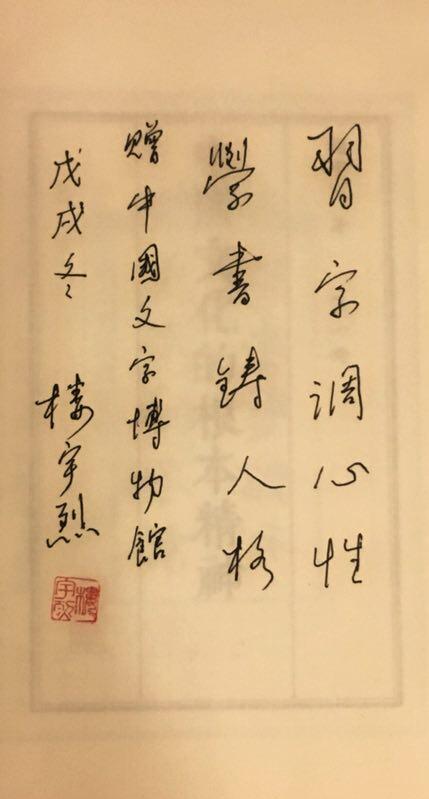 習字调心性
學書鑄人格
贈中國文字博物館
戊戌冬 楼宇烈
樓宇烈